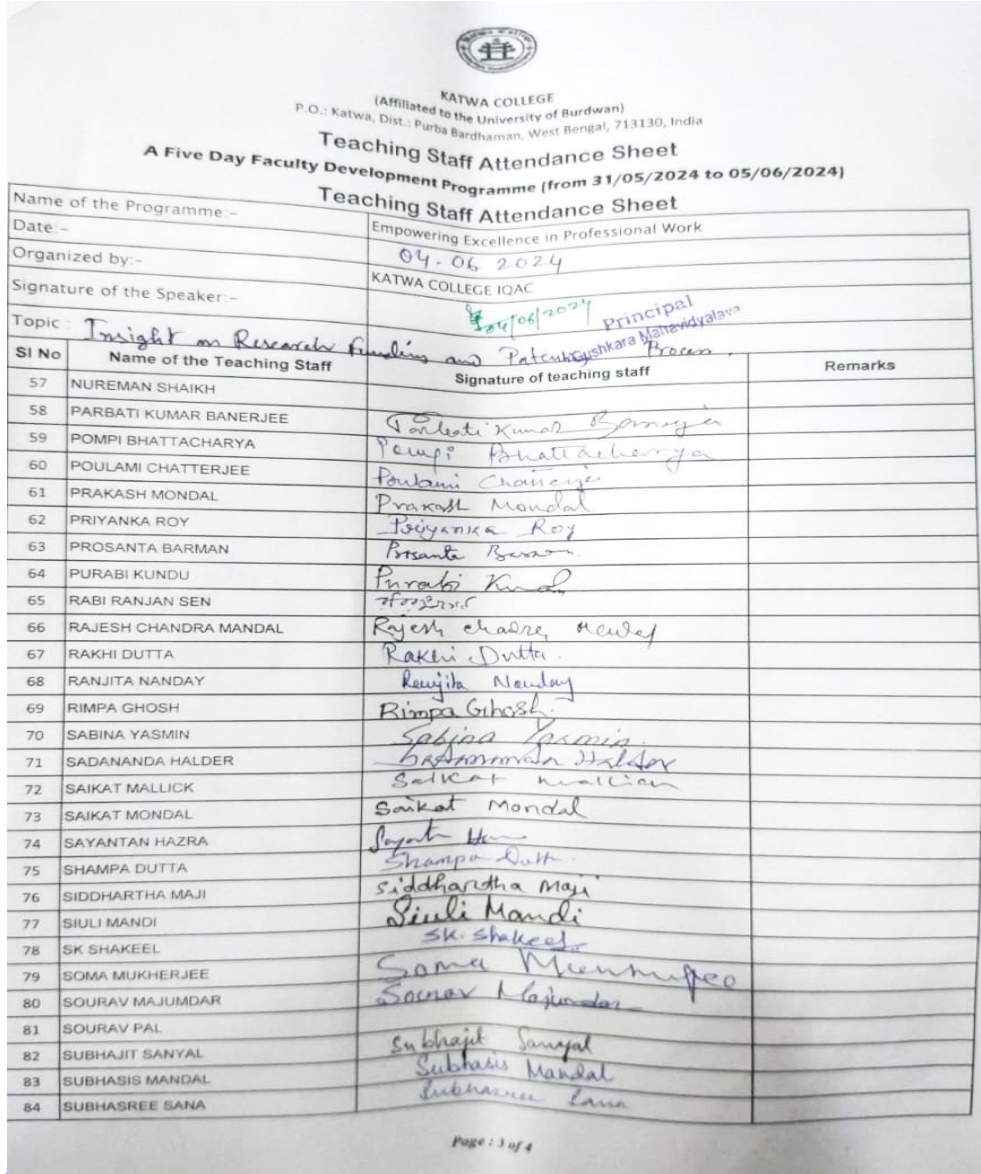 KATWA COLLEGE
(Affiliated to the University of Burdwan)
P.O.: Katwa, Dist.: Purba Bardhaman, West Bengal, 713130, India
Teaching Staff Attendance Sheet
A Five Day Faculty Development Programme (from 31/05/2024 to 05/06/2024)
Teaching Staff Attendance Sheet
Name of the Programme:- Empowering Excellence in Professional Work
Date:- 04-06 2024
Organized by:- KATWA COLLEGE IQAC
Signature of the Speaker:- 04/06/2024 Principal
Gushkara Mahavidyalaya
Topic : Insight on Research Funding and Patenting Process.
Sl No Name of the Teaching Staff Signature of teaching staff Remarks
57 NUREMAN SHAIKH
58 PARBATI KUMAR BANERJEE Parbati Kumar Banerjee
59 POMPI BHATTACHARYA Pompi Bhattacharya
60 POULAMI CHATTERJEE Poulami Chatterjee
61 PRAKASH MONDAL Prakash Mondal
62 PRIYANKA ROY Priyanka Roy
63 PROSANTA BARMAN Prosanta Barman
64 PURABI KUNDU Purabi Kundu
65 RABI RANJAN SEN
66 RAJESH CHANDRA MANDAL Rajesh Chandra Mandal
67 RAKHI DUTTA Rakhi Dutta.
68 RANJITA NANDAY Ranjita Nanday
69 RIMPA GHOSH Rimpa Ghosh.
70 SABINA YASMIN Sabina Yasmin.
71 SADANANDA HALDER
72 SAIKAT MALLICK Saikat Mallick
73 SAIKAT MONDAL Saikat Mondal
74 SAYANTAN HAZRA
75 SHAMPA DUTTA Shampa Dutta.
76 SIDDHARTHA MAJI Siddhartha Maji
77 SIULI MANDI Siuli Mandi
78 SK SHAKEEL SK. Shakeel
79 SOMA MUKHERJEE Soma Mukherjee
80 SOURAV MAJUMDAR Sourav Majumdar
81 SOURAV PAL
82 SUBHAJIT SANYAL Subhajit Sanyal
83 SUBHASIS MANDAL Subhasis Mandal
84 SUBHASREE SANA Subhasree Sana
Page : 3 of 4